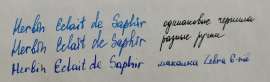 Herbin Eclat de Saphir одинаковые чернила
Herbin Eclat de Saphir разные ручки
Herbin Eclat de Saphir макалка Zebra G-nib